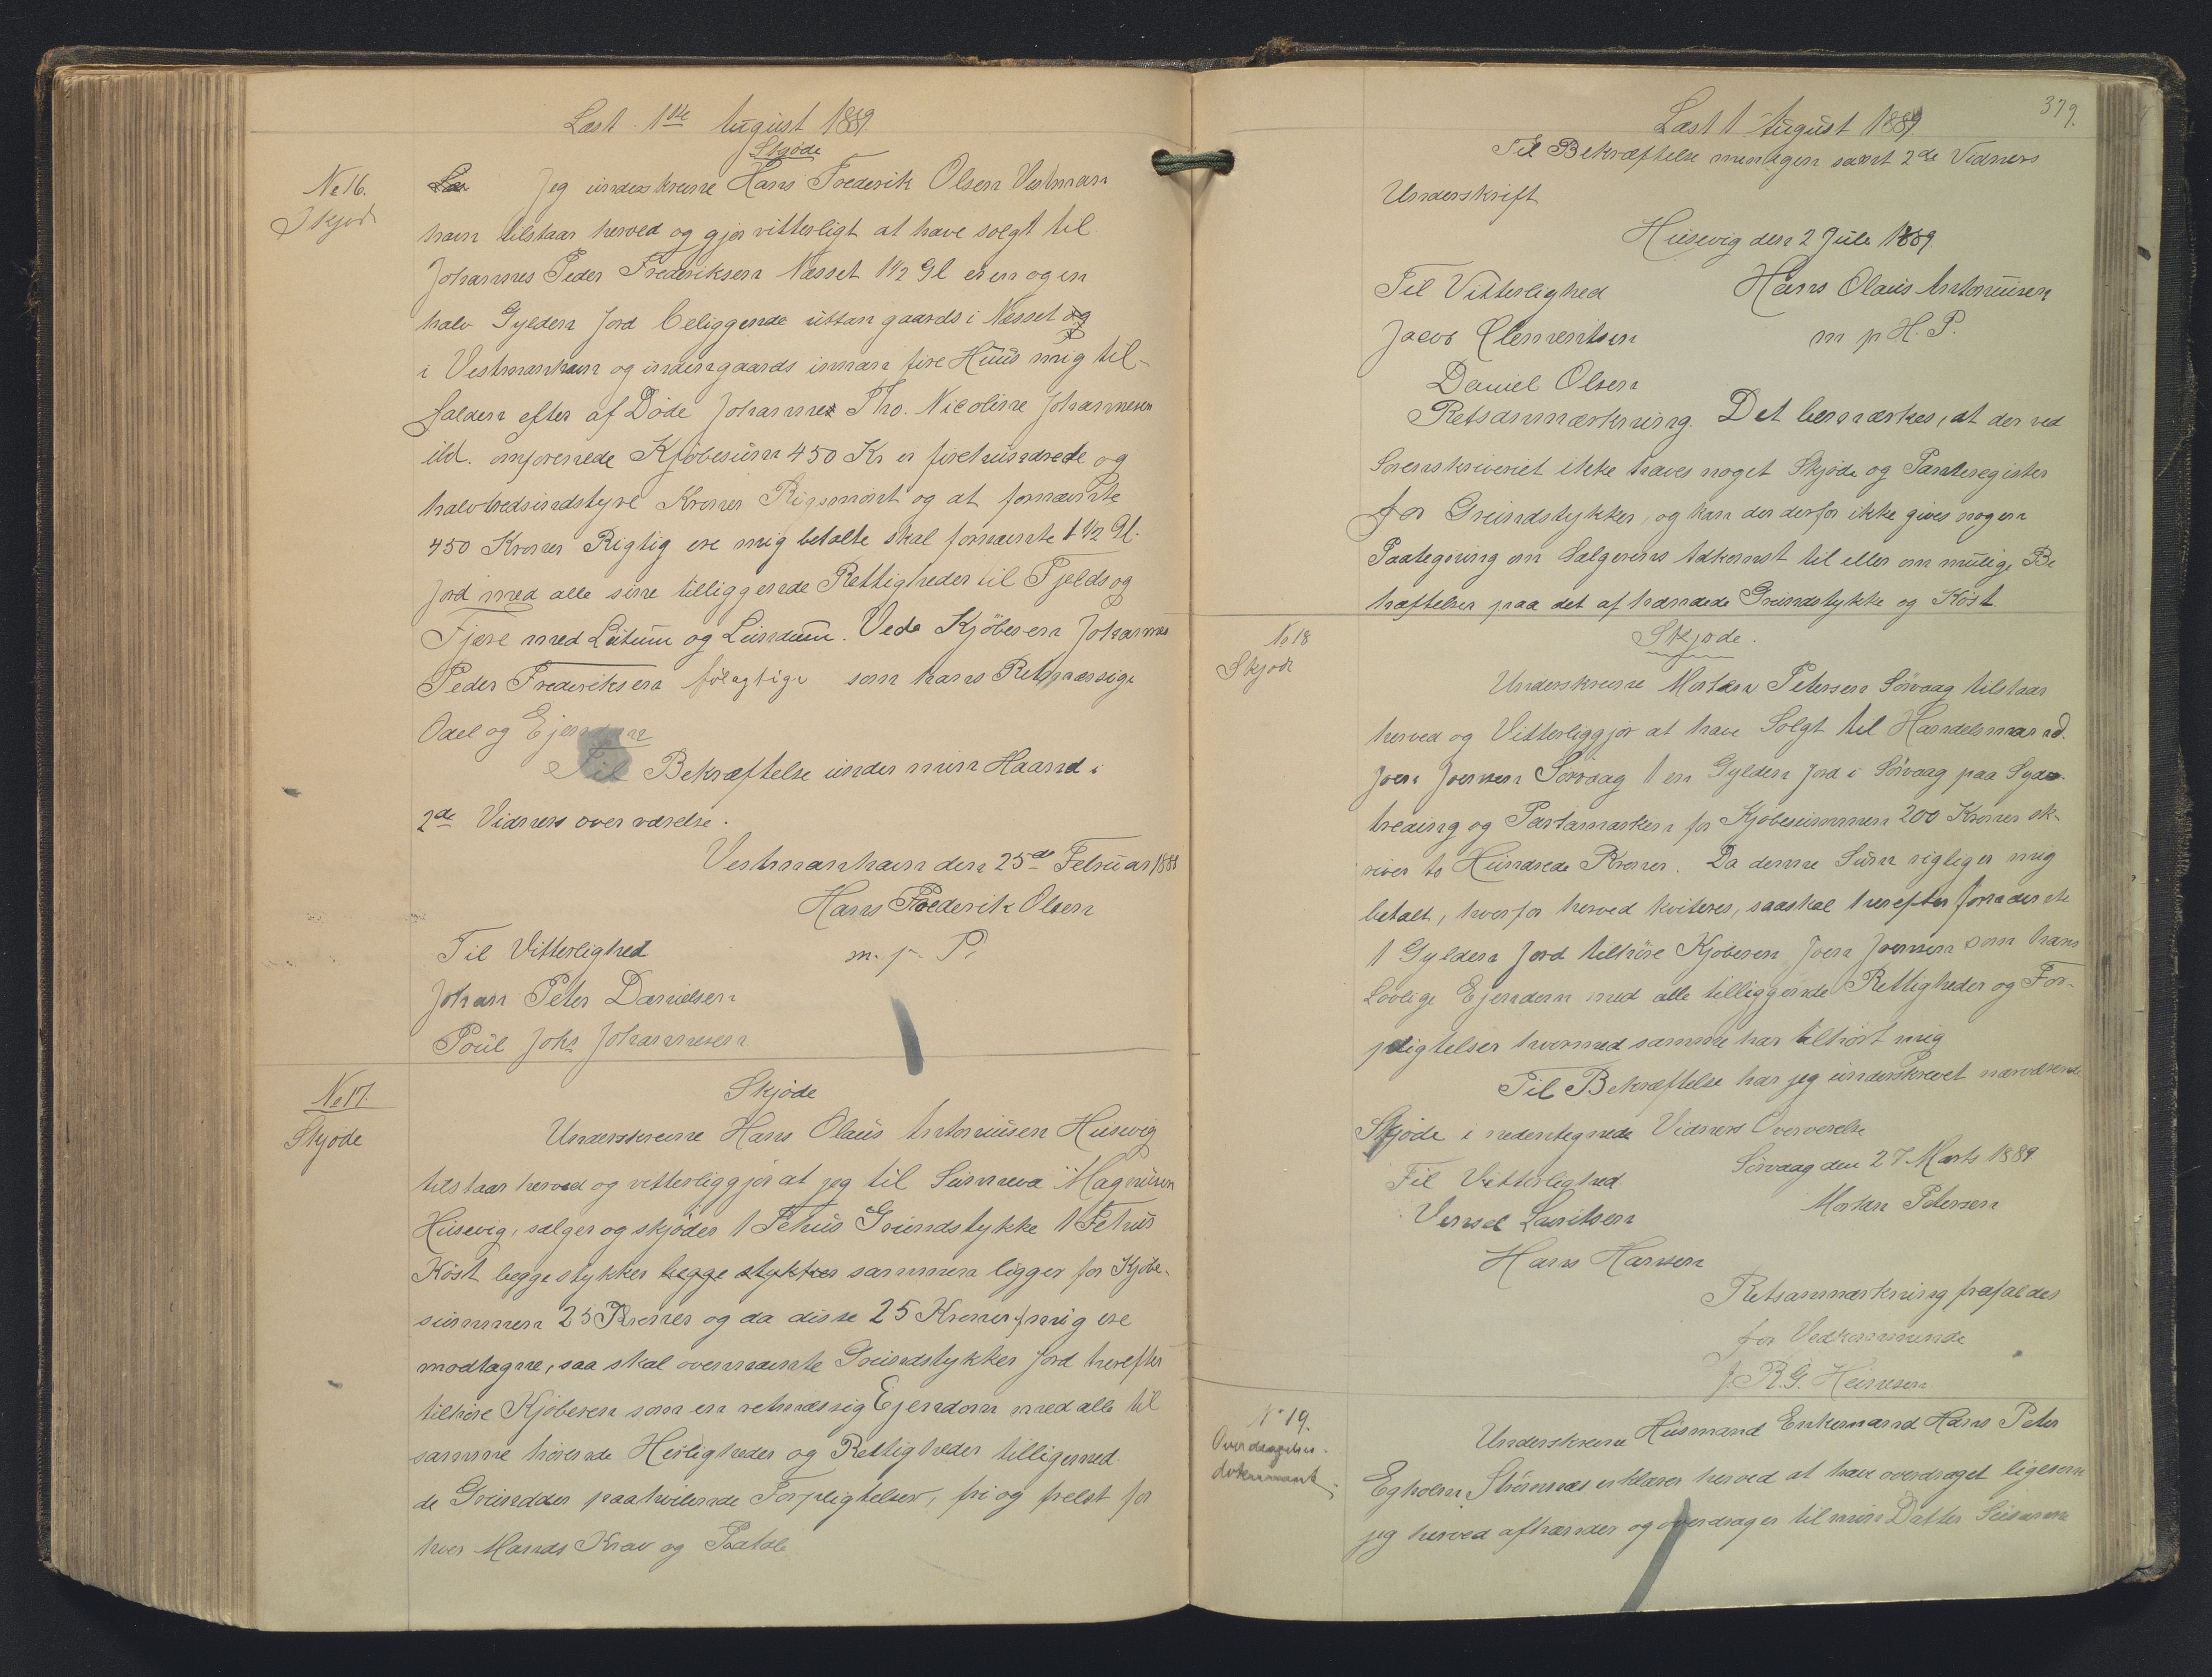 Læst 1ste August 1889.
Skjøde
No 16.
Skjøde
Læs Jeg underskrevne Hans Frederik Olsen Vestman
havn tilstaar herved og gjør vitterligt at have solgt til
Johannes Peder Frederiksen Næsset 1 1/2 Gl er en og en
halv Gylden Jord beliggende uttan gaards i Næsset og
i Vestmanhavn og indengaards innan fire Huus mig til-
falden efter af Døde Johannes Tho. Nicoline Johannesen
ibd. omforenede Kjøbesum 450 Kr er firehundrede og
halvtredsindstyve Kroner Rigsmønt og at fornævnte
450 Kroner Rigtig ere mig betalte skal fornævnte 1 1/2 Gl.
Jord med alle sine tilliggende Rettigheder til Fjelds og
Fjære med Lutum og Lundum. Vede Kjøberen Johannes
Peder Frederiksen følagtige som hans Retmæssige
Odel og Ejendom
Til Bekræftelse under min Haand i
2de Vidners overværelse.
Vestmanhavn den 25de Februar 1888
Hans Frederik Olsen
Til Vitterlighed m. p. P.
Johan Peter Danielsen
Poul Johs Johannesen
No 17.
Skjøde
Skjøde
Underskrevne Hans Olaus Antoniusen Husevig
tilstaar herved og vitterliggjør at jeg til Sunneva Magnusen
Husevig, sælger og skjøder 1 Fehus Grundstykke 1 Fehus
Kost begge stykker begge stykker sammen ligger for Kjøbe-
summen 25 Kroner og da disse 25 Kroner mig ere
modtagne, saa skal ovennævnte Grundstykker Jord herefter
tilhøre Kjøberen som en retmæssig Ejendom med alle til
samme hørende Herligheder og Rettigheder tilligemed
de Grunddes paahvilende Forpligtelser, fri og frelst for
hver Mands Krav og Paatale
379.
Læst 1 August 1889
Til Bekræftelse men egen samt 2de Vidners
Underskrift
Husevig den 2 Juli 1889.
Til Vitterlighed Hans Olaus Antoniusen
Jacob Clementsen m p H. P.
Daniel Olsen
Retsanmærkning. Det bemærkes, at der ved
Sorenskriveriet ikke haves noget Skjøde og Panteregister
for Grundstykker, og kan der derfor ikke gives nogen
Paategning om Sælgerens Adkomst til eller om mulige Be
hæftelser paa det af hændede Grundstykke og Kost
No 18
Skjøde
Skjøde.
Underskrevne Morten Petersen Sørvaag tilstaar
herved og Vitterliggjør at have Solgt til Handelsmand
Joen Joensen Sørvaag 1 en Gylden Jord i Sørvaag paa Sydr-
treding og Partamarken for Kjøbesummen 200 Kroner sk-
river to Hundrede Kroner. Da denne Sum rigtig er mig
betalt, hvorfor herved kviteres, saaskal herefter fornævnte
1 Gylden Jord tilhøre Kjøberen Joen Joensen som hans
Lovlige Ejendom med alle tilliggende Rettigheder og For-
pligtelser hvormed samme har tilhørt mig
Til Bekræftelse har jeg underskrevet nærværende
Skjøde i nedentegnede Vidners Oververelse
Til Vitterlighed Sørvaag den 27 Marts 1889
Morten Petersen
Lauritsen
Hans Hansen
Retsanmærkning frafaldes
for Vedkommende
J. R. G. Heinesen
No 19.
Overdragelses-
dokument
Underskrevne Husmand Enkemand Hans Peter
Egholm Strømnæs erklærer herved at have overdraget ligesom
jeg herved afhænder og overdrager til min Datter Susanne